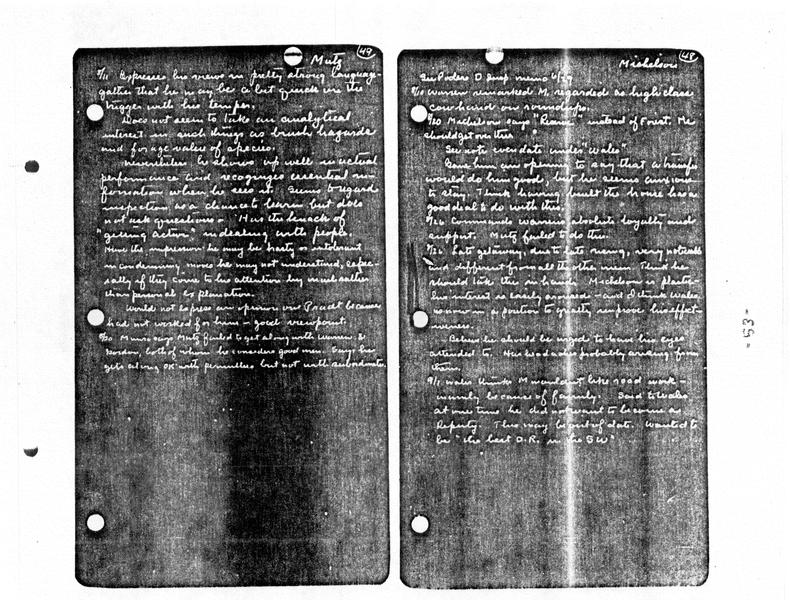 49
Mutz
9/11 Expresses his views in pretty strong language -
gather that he may be a bit quick on the
trigger with his temper.
Does not seem to take an analytical
interest in such things as brush hazards
and forage value of a species.
Nevertheless he shows up well in actual
performance and recognizes essential in-
formation when he sees it. Seems to regard
inspection as a chance to learn but does
not ask questions. Has the knack of
"getting action" in dealing with people.
Have the impression he may be hasty or intolerant
in condemning moves he may not understand, espec-
ially if they come to his attention by mail rather
than personal explanation.
Would not express an opinion on Pratt because
had not worked for him - good viewpoint.
Munro says Mutz failed to get along with Warren &
Gordon, both of whom he considers good men. Says he
gets along OK with permittees but not with subordinates.
48
Michelson
See Poders D Insp memo 6/29
Warren remarked M. regarded as high class
cowhand on roundups.
Michelson says "Reserve" instead of Forest. He
should get over this
See note even date under "Wales"
Gave him an opening to say that a transfer
would do him good but he seems anxious
to stay. Think having built the house has a
good deal to do with this.
Commands Warrens absolute loyalty and
support. Mutz failed to do this.
Late getaway, due to late rising, very noticeable
and different from all the other men. Think he
should take this in hand. Michelson is plastic -
his interest is easily aroused - and I think Wales
is now in a position to greatly improve his effect-
iveness.
Believe he should be urged to have his eyes
attended to. His headaches probably arising from
them.
9/1 Wales thinks M wouldn't like road work -
mainly because of family. Said to Wales
at one time he did not want to become a
Deputy. This may be out of date. Wanted to
be "the best D.R. in the SW"
- 53 -